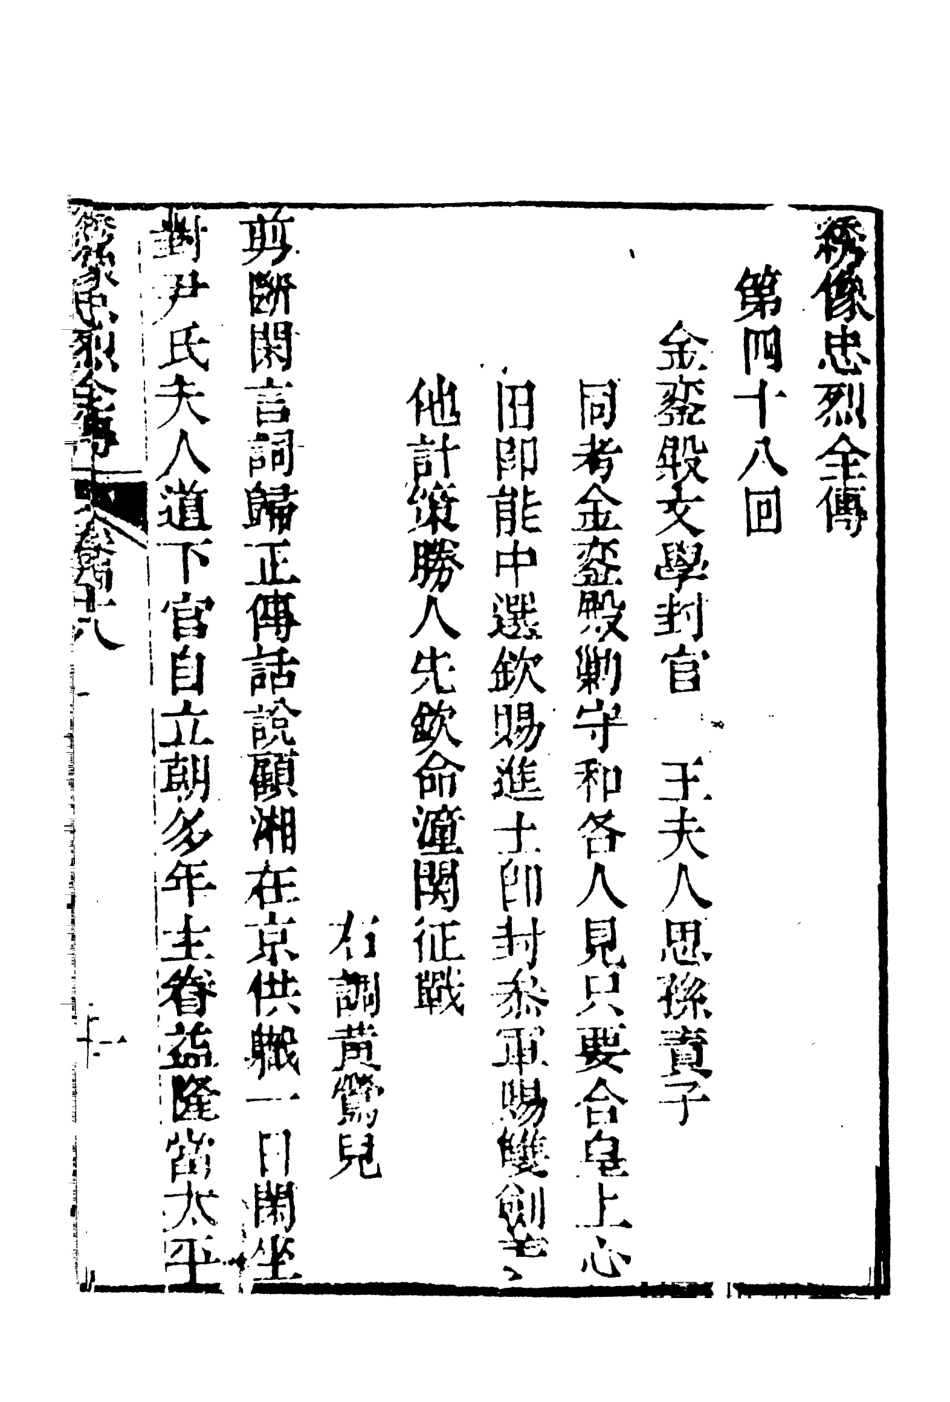 綉像忠烈全傳
第四十八回
金鑾殿文學封官 王夫人思孫責子
同考金鑾殿剿守和各人見只要合皇上心
旧即能中選欽賜進士即封叅軍賜雙劍
他計策勝人先欽命潼関征戰
右調黄鶯兒
剪斷閑言詞歸正傳話說顧湘在京供職一日閑坐
對尹氏夫人道下官自立朝多年主眷益隆當太平
綉像忠烈全傳 卷四十八
十一